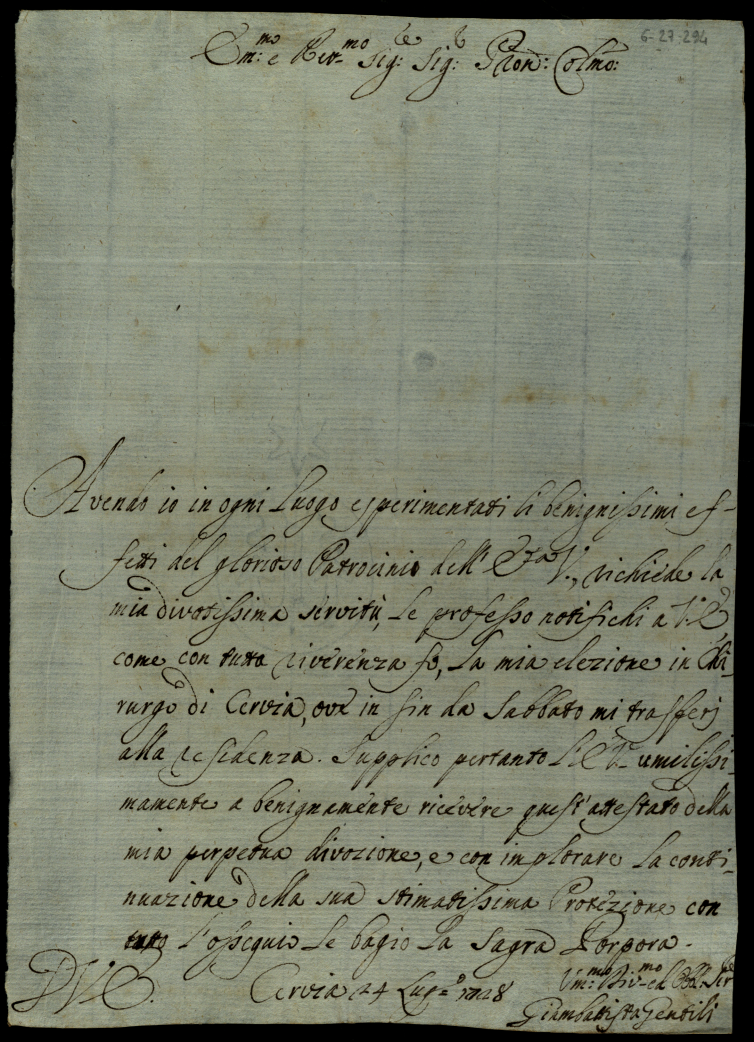 6-27-294
Em:mo e Rev-mo Sig:re Sig:r Pron: Colmo:
Avendo io in ogni Luogo esperimentati li benignissimi ef-
fetti del glorioso Patrocinio dell' E.za V., richiede la
mia divotissima servitù, Le professo notifichi a V.E
come con tutta riverenza fò, La mia elezione in Chi-
rurgo di Cervia, ove in fin da Sabbato mi trasferj
alla residenza. Supplico pertanto L'E.V. umilissi-
mamente a benignamente ricevere quest'attestato della
mia perpetua divozione, e con implorare La conti-
nuazione della sua stimatissima Protezione con
tutto L'ossequio Le bagio La Sagra Porpora.
DVE. Cervia 24 Lug=o 1728
Um:mo Div-mo ed Obl: Ser.re
Giambattista Gentili